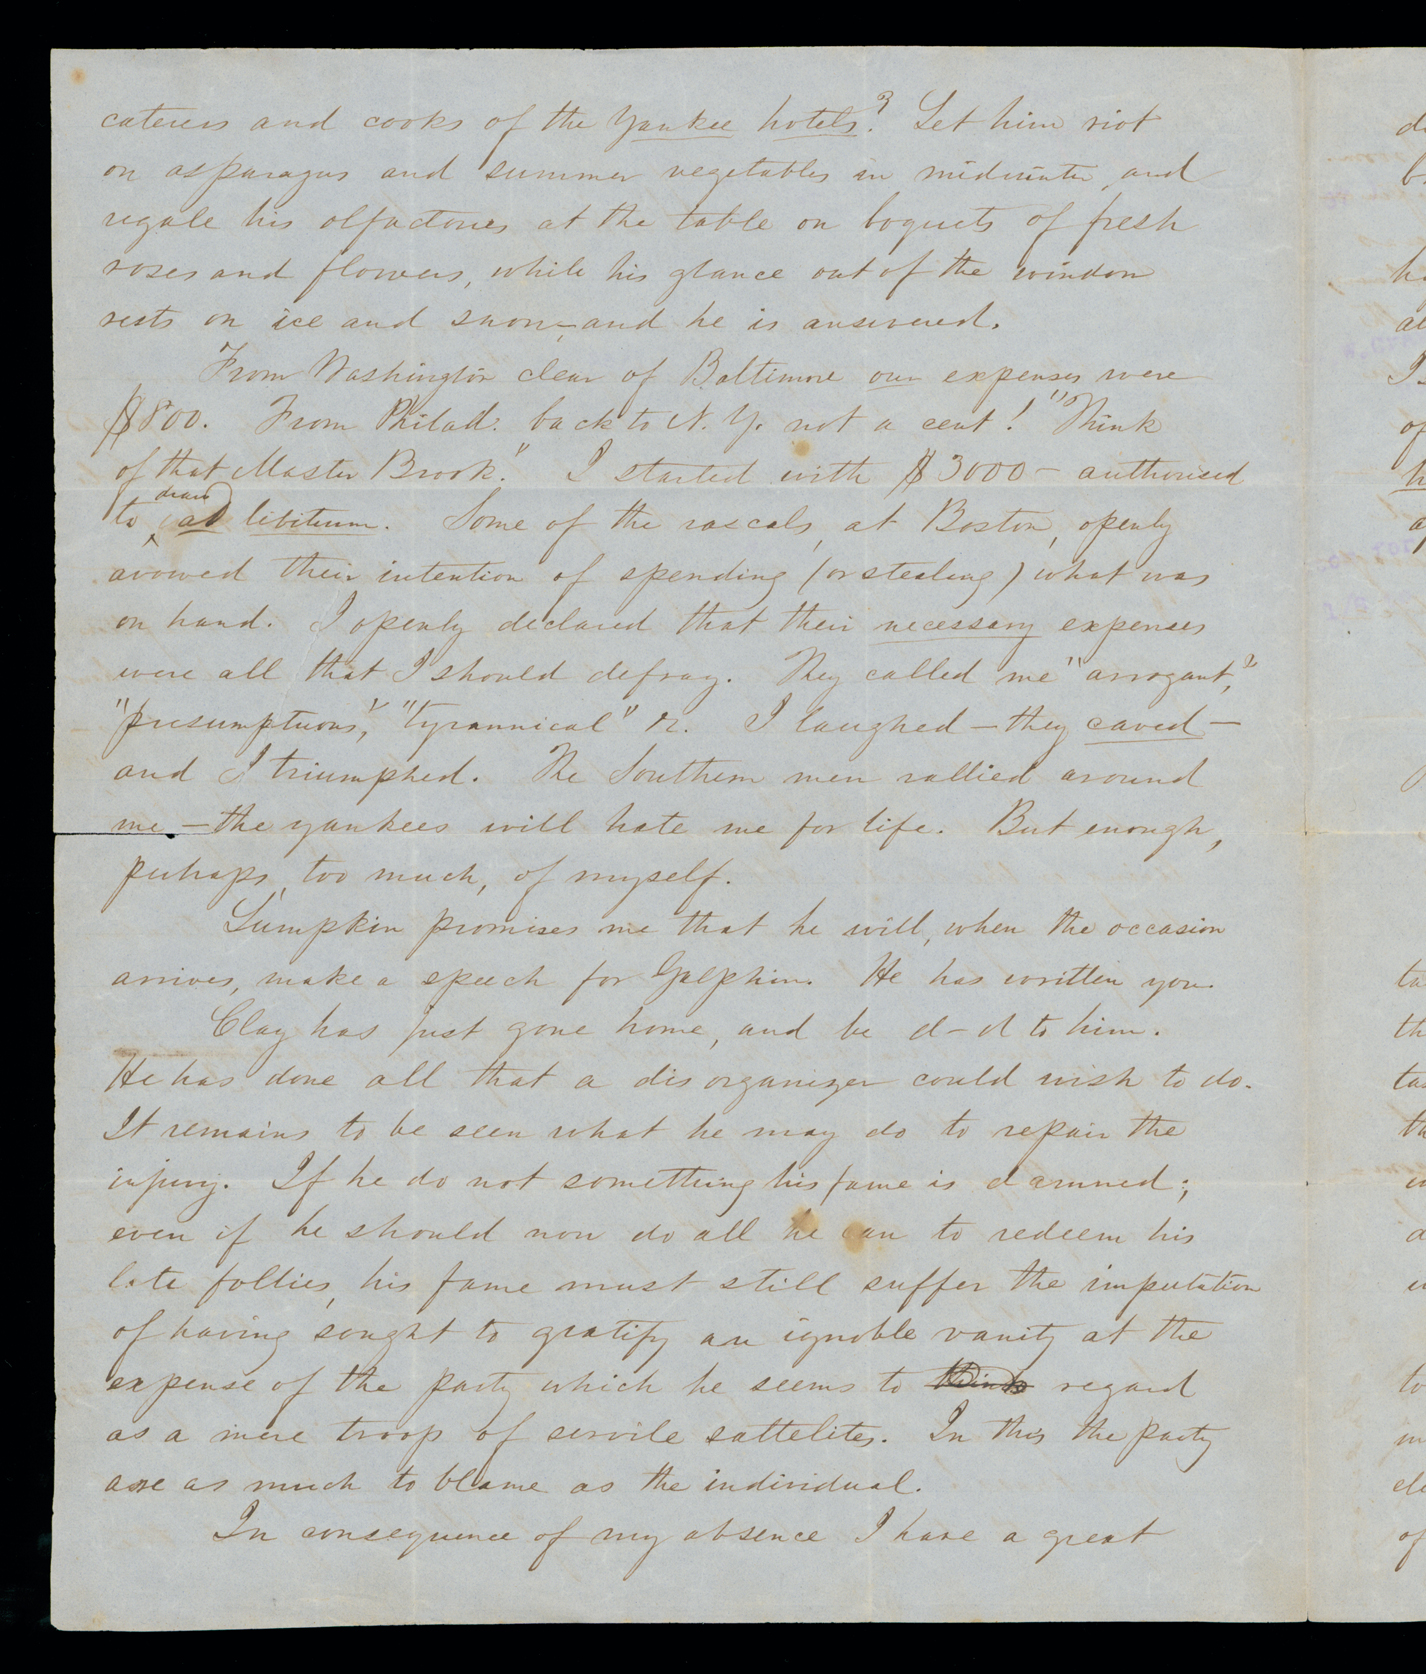 caterers and cooks of the Yankee hotels? Let him riot
on asparagus and summer vegetables in midwinter, and
regale his olfactories at the table on boquets of fresh
roses and flowers, while his glance out of the window
rests on ice and snow,—and he is answered.
From Washington clear of Baltimore our expenses were
$800. From Philad. back to N. Y. not a cent! "Think
of that Master Brook." I started with $3000 – authorised
to draw ad libitum. Some of the rascals, at Boston, openly
avowed their intention of spending (or stealing) what was
on hand. I openly declared that their necessary expenses
were all that I should defray. They called me "arrogant,"
"presumptuous," "tyrannical" &c. I laughed – they caved –
and I triumphed. The Southern men rallied around
me – the yankees will hate me for life. But enough,
perhaps, too much, of myself.
Lumpkin promises me that he will, when the occasion
arrives, make a speech for Galphin. He has written you.
Clay has just gone home, and be d–d to him.
He has done all that a disorganizer could wish to do.
It remains to be seen what he may do to repair the
injury. If he do not something his fame is damned;
even if he should now do all he can to redeem his
late follies, his fame must still suffer the imputation
of having sought to gratify an ignoble vanity at the
expense of the party which he seems to think regard
as a mere troop of servile sattelites. In this the party
are as much to blame as the individual.
In consequence of my absence I have a great